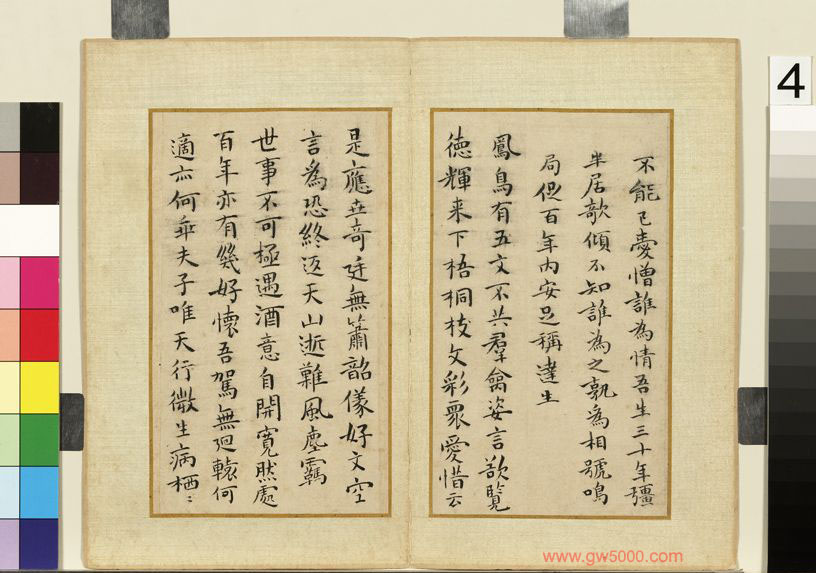 不能已憂憎誰為情吾生三十年彊
半居欹傾不知誰為之孰為相號鳴
局促百年內安足稱達生
鳳鳥有五文不共羣禽姿言欲覽
德輝来下梧桐枝文彩眾愛惜云
是應世奇廷無簫韶儀好文空
言為恐終返天山逝難風塵羈
世事不可極遇酒意自開寬然處
百年亦有幾好懷吾駕無迴轅何
適亦何乖夫子唯天行微生病栖〻
4
www.gw5000.com